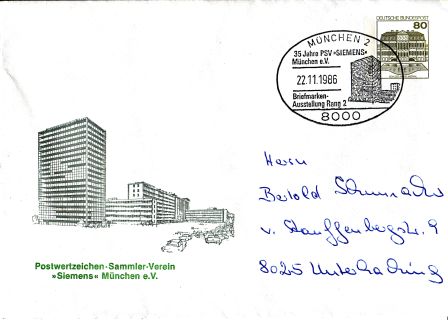 MÜNCHEN 2
35 Jahre PSV »SIEMENS«
München e.V.
22.11.1986
Briefmarken-
Ausstellung Rang 2
8000
DEUTSCHE BUNDESPOST
80
Herrn
Bertold Schumacher
v. Stauffenbergstr. 9
8025 Unterhaching
Postwertzeichen-Sammler-Verein
»Siemens« München e.V.